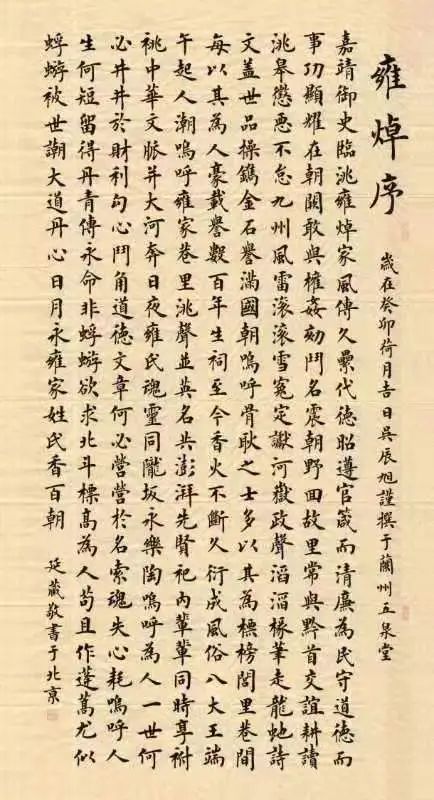 雍焯序
歲在癸卯荷月吉日吳辰旭謹撰于蘭州五泉堂
嘉靖御史臨洮雍焯家風傳久累代德昭遵官箴而清廉為民守道德而
事功顯耀在朝闕敢與權奸劾鬥名震朝野回故里常與黔首交誼耕讀
洮皋懲惡不怠九州風雷滚滚雪冤定讞河嶽政聲滔滔椽筆走龍虵詩
文蓋世品操鐫金石譽滿國朝嗚呼骨耿之士多以其為標榜閭里巷間
每以其為人豪載譽數百年生祠至今香火不斷久衍成風俗八大王端
午起人潮嗚呼雍家巷里洮聲並英名共澎湃先賢祀內輩輩同時享祔
祧中華文脈并大河奔日夜雍氏魂靈同隴坂永樂陶嗚呼為人一世何
必井井於財利勾心鬥角道德文章何必營營於名索魂失心耗嗚呼人
生何短留得丹青傳永命非蜉蝣欲求北斗標高為人苟且作蓬蒿尤似
蜉蝣被世謿大道丹心日月永雍家姓氏香百朝
延藏敬書于北京